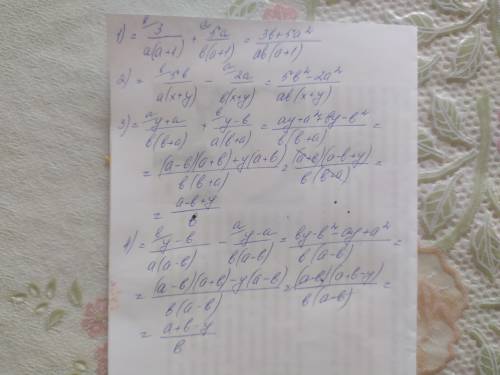 1) = ᵇ⁄ 3/a(a+1) + ᵃ⁄ 5a/b(a+1) = 3b+5a²/ab(a+1)
2) = ᵇ⁄ 5b/a(x+y) - ᵃ⁄ 2a/b(x+y) = 5b²-2a²/ab(x+y)
3) = ᵃ⁄ y+a/b(b+a) + ᵇ⁄ y-b/a(b+a) = ay+a²+by-b²/b(b+a) =
= (a-b)(a+b)+y(a+b)/b(b+a) = (a+b)(a-b+y)/b(b+a) =
= a-b+y/b
4) = ᵇ⁄ y-b/a(a-b) - ᵃ⁄ y-a/b(a-b) = by-b²-ay+a²/b(a-b) =
= (a-b)(a+b)-y(a-b)/b(a-b) = (a-b)(a+b-y)/b(a-b) =
= a+b-y/b